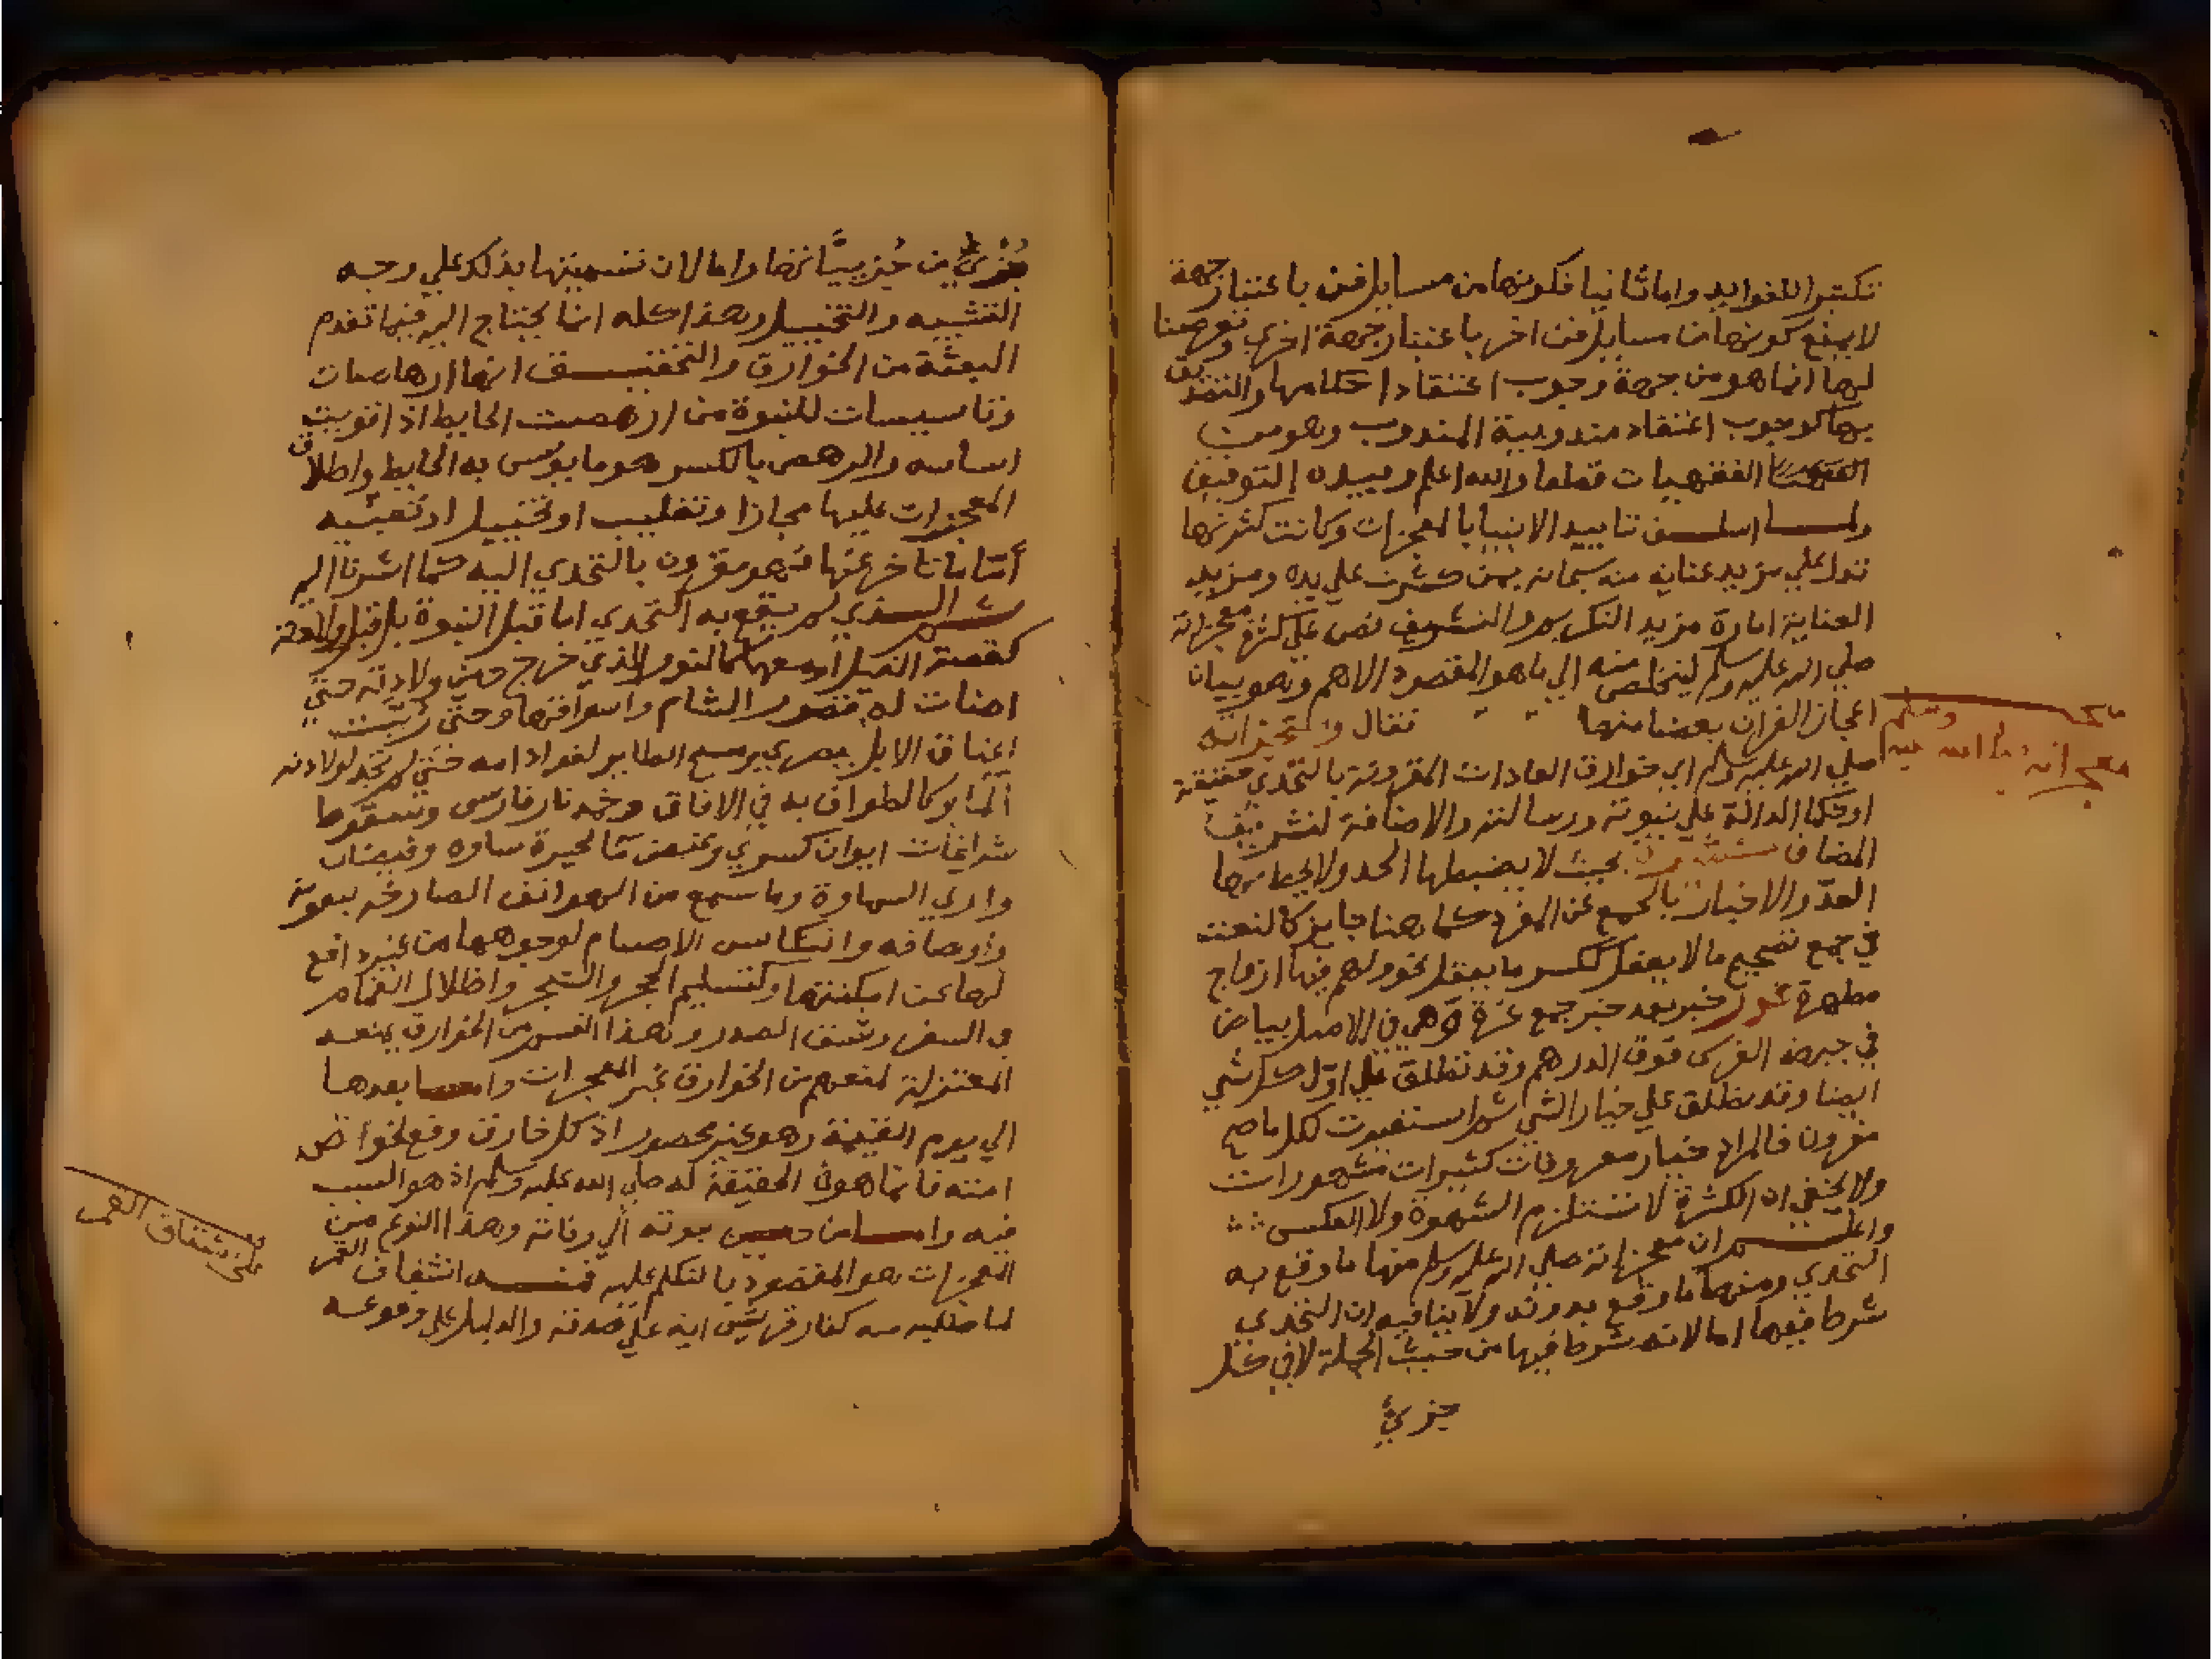 تكثيرا للفوايد واما ثانيا فكونها من مسايل فن باعتبار جهة
لا يمنع كونها من مسايل فن اخر باعتبار جهة اخري وتعرضنا
لها انما هو من جهة وجوب اعتقاد احكامها والتصديق
بها كوجوب اعتقاد مندوبية المندوب وهو من
الفقهيات قطعا والله اعلم وبيده التوفيق
ولما اسلف تاييد الانبيا بالمعجزات وكانت كثرتها
تدل علي مزيد عناية منه سبحانه بمن كثرت علي يده ومزيد
العناية امارة مزيد التكريم والتشريف نص علي كثرة معجزاته
صلي الله عليه وسلم ليتخلص منه الي ما هو المقصود الاهم وهو بيان
اعجاز القران بعضا منها فقال ومعجزاته
صلي الله عليه وسلم اي خوارق العادات المقرونة بالتحدي حقيقة
او حكما الدالة علي نبوته ورسالته والاضافة لتشريف
المضاف بحيث لا يضبطها الحد ولا يحيط بها
العد والاخبار بالجمع عن المفرد كما هنا جايز كالنعت
في جمع تصحيح ما لا يعقل ككسر ما يعقل نحو ولهم فيها ازواج
مطهرة غرر خبر بعد خبر جمع غرة وهي في الاصل بياض
في جبهة الفرس فوق الدرهم وقد تطلق علي اول كل شي
ايضا وقد تطلق علي خيار الشي ثم استعيرت لكل ما صح
مقرون فالمراد خيار معروفات كثيرات مشهورات
ولا يخفي ان الكثرة لا تستلزم الشهرة ولا العكس
واعلم ان معجزاته صلي الله عليه وسلم منها ما وقع به
التحدي ومنها ما وقع بدونه ولا ينافيه ان التحدي
شرط فيها اما لانه شرط فيها من حيث الجملة لا في كل
جزئي
وسلم
معجزاته صلى الله عليه
جزئي من جزيياتها واما لان تسميتها بذلك علي وجه
التشبيه والتخييل وهذا كله انما يحتاج اليه فيما تقدم
البعثة من الخوارق والتحقيق انها ارهاصات
وتاسيسات للنبوة من ارهصت الحايط اذا قويت
اساسه والرهص بالكسر هو ما يؤسس به الحايط واطلاق
المعجزات عليها مجازا وتغليب او تخييل او تشبيه
أما ما تاخر عنها فهو مقرون بالتحدي اليه كما اشرنا اليه
ثم الذي لم يقع به التحدي اما قبل النبوة بل قبل
كقصة الفيل او معها كالنور الذي خرج حين ولادته حتي
اضات له قصور الشام واسواقها وحتى رئيت
اعناق الابل ببصري ومسح الطاير لفواد امه حتي لم تجد لولادته
الما وكالطواف به في الافاق وخمد نار فارس وسقوط
شرافات ايوان كسري وغيض ما بحيرة ساوه وفيضان
وادي السماوة وما سمع من الهواتف الصارخه بنعوته
واوصافه وانتكاس الاصنام لوجوهها من غير دافع
لها عن امكنتها وكتسليم الحجر والشجر واظلال الغمام
في السفر وشق الصدر وهذا القسم من الخوارق يمنعه
المعتزلة لمنعهم من الخوارق غير المعجزات واما بعدها
الي يوم القيمة وهو غير محصور اذ كل خارق وقع لخواص
امته فانما هو في الحقيقة له صلي الله عليه وسلم اذ هو السبب
فيه واما من حين موته الي وفاته وهذا النوع من
المعجزات هو المقصود بالتكلم عليه فمنه انشقاق القمر
لما طلب منه كفار قريش اية علي صدقه والدليل علي وقوعه
انشقاق القمر